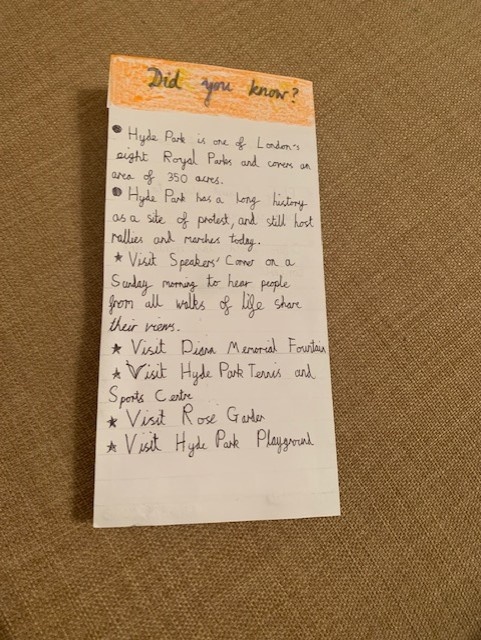 Did you know?
● Hyde Park is one of London's
eight Royal Parks and covers an
area of 350 acres.
● Hyde Park has a long history
as a site of protest, and still host
rallies and marches today.
★ Visit Speakers' Corner on a
Sunday morning to hear people
from all walks of life share
their views.
★ Visit Diana Memorial Fountain
★ Visit Hyde Park Tennis and
Sports Centre
★ Visit Rose Garden
★ Visit Hyde Park Playground